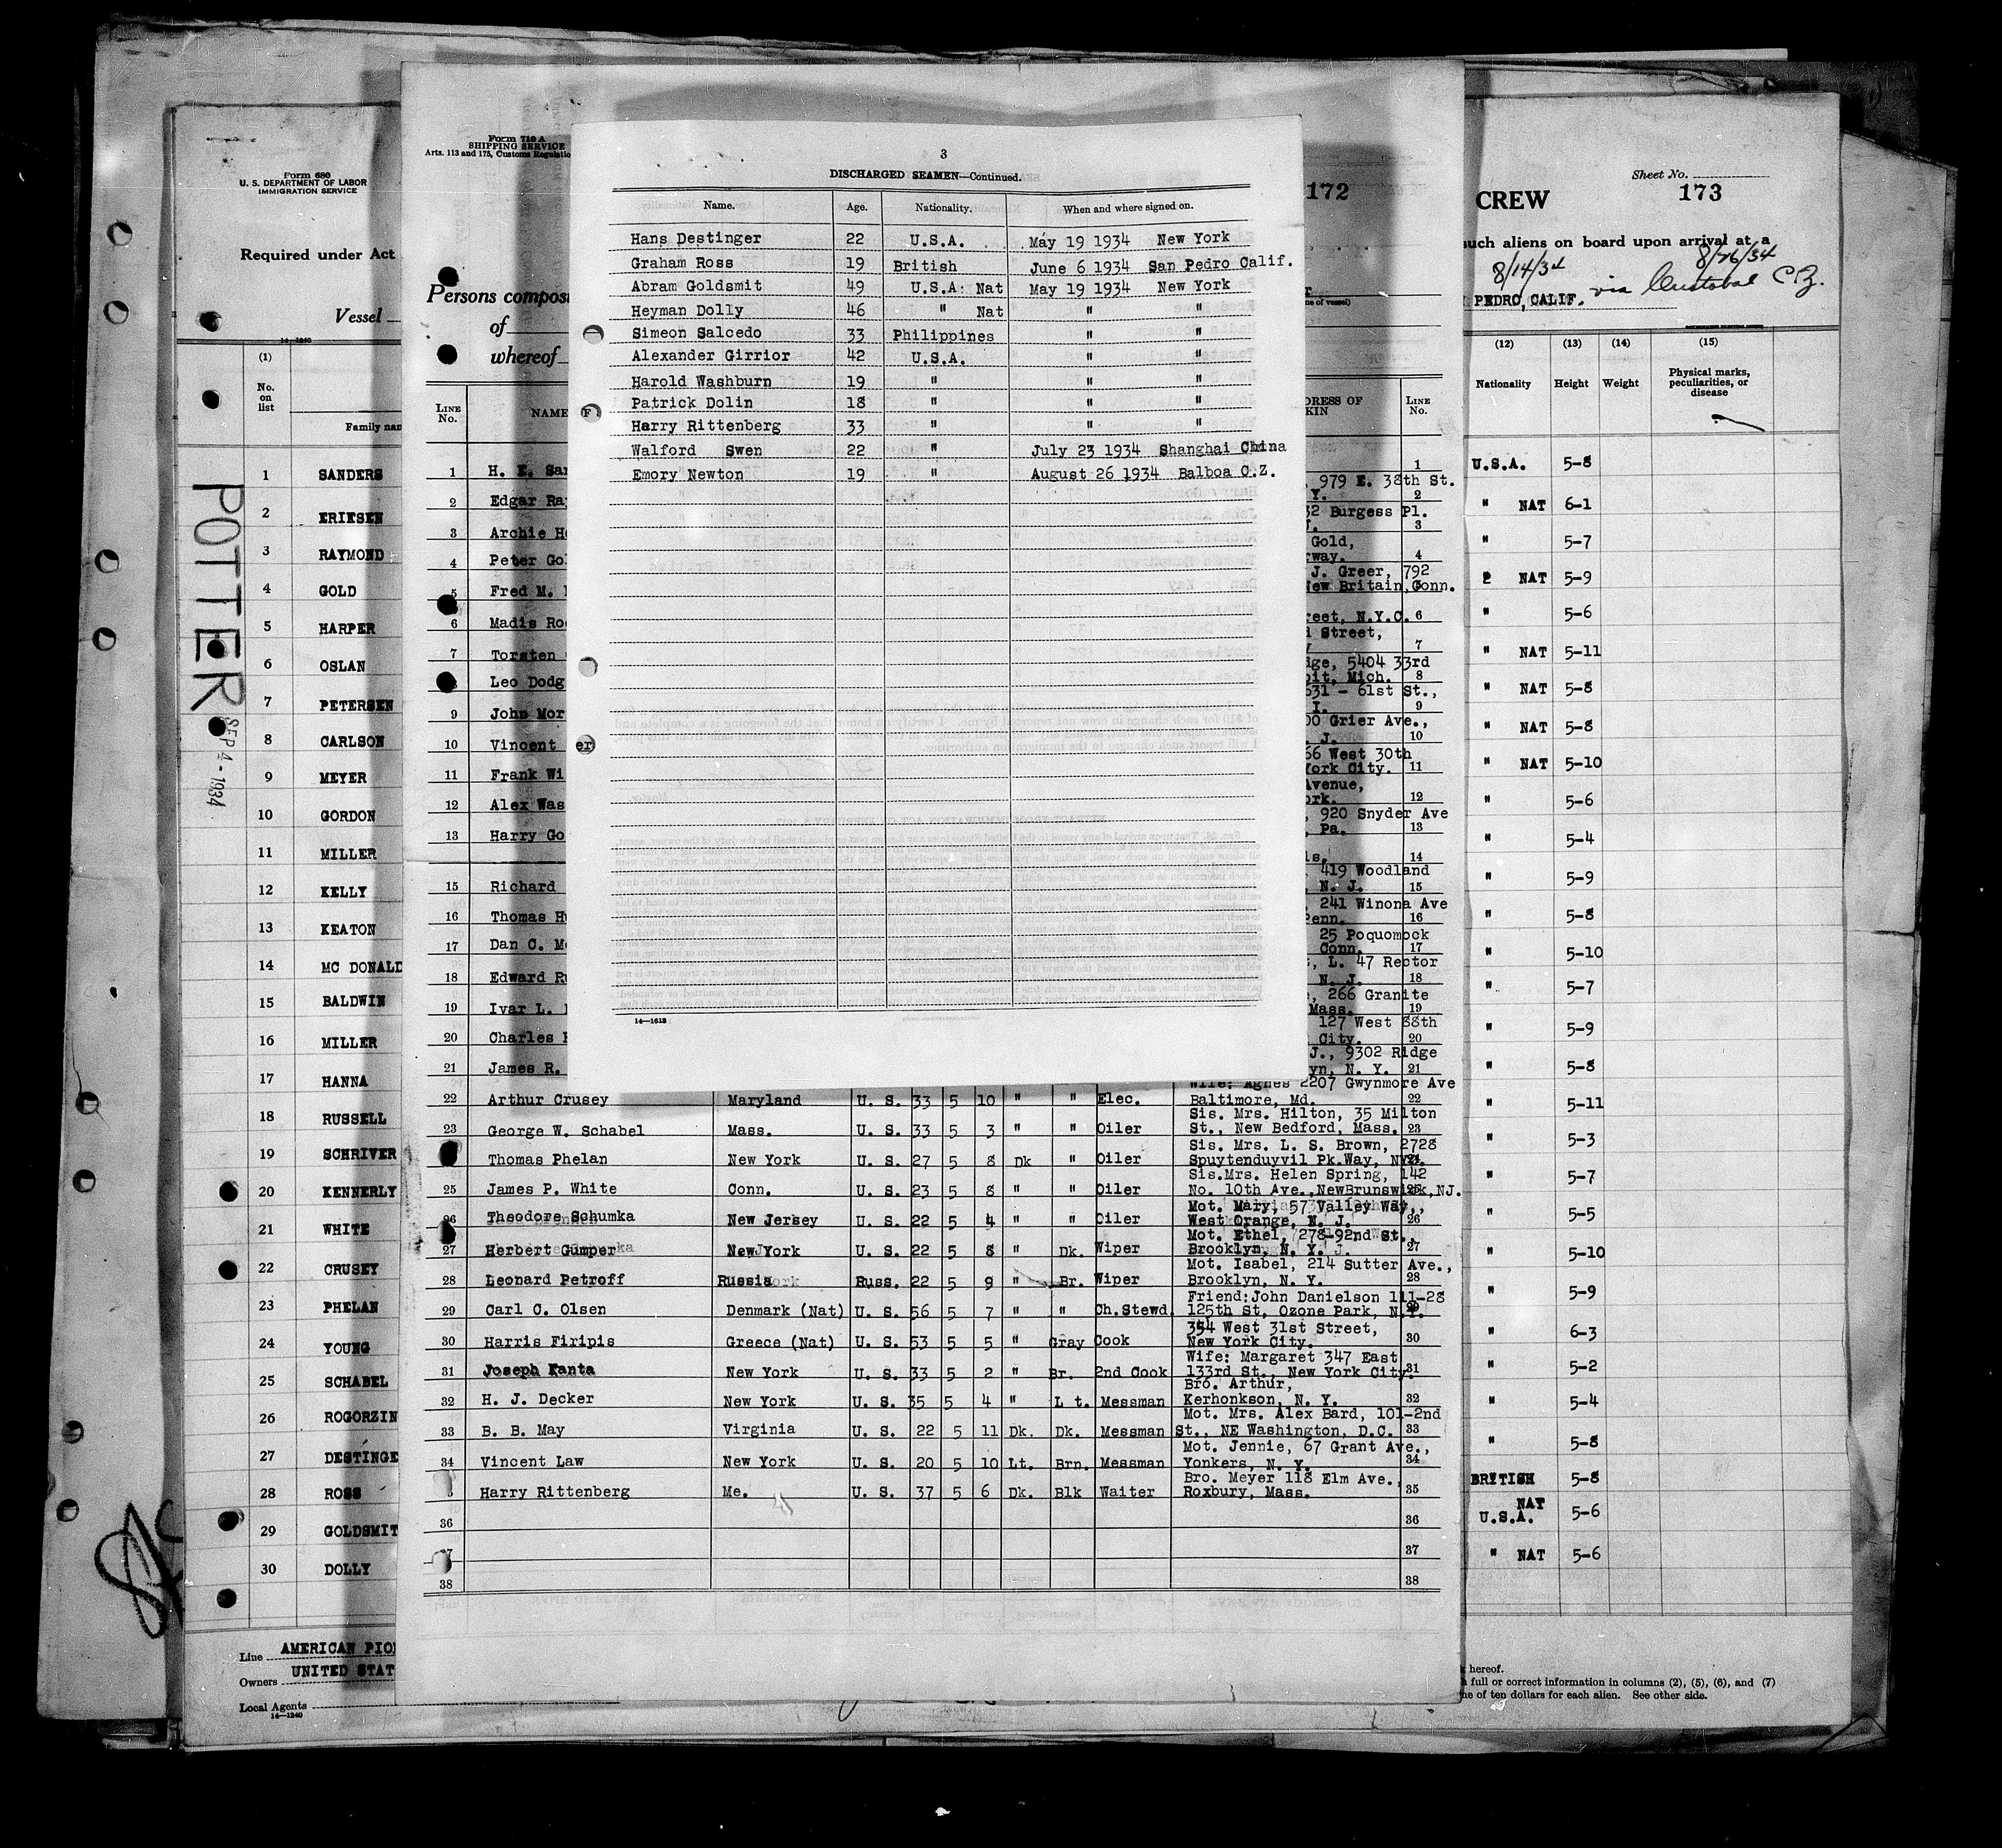 3
DISCHARGED SEAMEN—Continued.
Name. Age. Nationality. When and where signed on.
Hans Destinger 22 U.S.A. May 19 1934 New York
Graham Ross 19 British June 6 1934 San Pedro Calif.
Abram Goldsmit 49 U.S.A. Nat May 19 1934 New York
Heyman Dolly 46 " Nat " "
Simeon Salcedo 33 Philippines " "
Alexander Girrior 42 U.S.A. " "
Harold Washburn 19 " " "
Patrick Dolin 18 " " "
Harry Rittenberg 33 " " "
Walford Swen 22 " July 23 1934 Shanghai China
Emory Newton 19 " August 26 1934 Balboa C.Z.
14—1613
Form 710 A
SHIPPING SERVICE
Arts. 113 and 175, Customs Regulatio
172
Persons compos
of
whereof
LINE No. NAME DRESS OF KIN LINE No.
1 H. E. Sar 1
, 979 E. 38th St.
2 Edgar Ray Y. 2
32 Burgess Pl.
3 Archie He J. 3
Gold,
4 Peter Gol rway. 4
J. Greer, 792
5 Fred M. New Britain, Conn.
6 Madis Roo reet, N.Y.C. 6
Street,
7 Torsten 7
dge, 5404 33rd
Leo Dodg oit, Mich. 8
631 - 61st St.,
9 John Mor I. 9
00 Grier Ave.,
10 Vincent er . J. 10
66 West 30th
11 Frank Wi York City. 11
Avenue,
12 Alex Was ork. 12
, 920 Snyder Ave
13 Harry Go , Pa. 13
ls. 14
, 419 Woodland
15 Richard N. J. 15
, 241 Winona Ave
16 Thomas Hu Penn. 16
25 Poquomock
17 Dan C. Mc Conn. 17
, L. 47 Rector
18 Edward Ru N. J. 18
, 266 Granite
19 Ivar L. Mass. 19
127 West 88th
20 Charles City. 20
J., 9302 Ridge
21 James R. yn, N. Y. 21
Wife: Agnes 2207 Gwynmore Ave
22 Arthur Crusey Maryland U. S. 33 5 10 " " Elec. Baltimore, Md. 22
Sis. Mrs. Hilton, 35 Milton
23 George W. Schabel Mass. U. S. 33 5 3 " " Oiler St., New Bedford, Mass. 23
Sis. Mrs. L. S. Brown, 2728
Thomas Phelan New York U. S. 27 5 8 Dk " Oiler Spuytenduyvil Pk.Way, NYC.
Sis.Mrs. Helen Spring, 142
25 James P. White Conn. U. S. 23 5 8 " " Oiler No. 10th Ave.,NewBrunswick,NJ. 25
Mot. Mary, 57 Valley Way,
26 Theodore Schumka New Jersey U. S. 22 5 4 " " Oiler West Orange, N. J. 26
Mot. Ethel, 278-92nd St.,
27 Herbert Gumper New York U. S. 22 5 8 " Dk. Wiper Brooklyn, N. Y. 27
Mot. Isabel, 214 Sutter Ave.,
28 Leonard Petroff Russia Russ. 22 5 9 " Br. Wiper Brooklyn, N. Y. 28
Friend:John Danielson 111-28
29 Carl C. Olsen Denmark (Nat) U. S. 56 5 7 " " Ch.Stewd. 125th St, Ozone Park, N.Y. 29
354 West 31st Street,
30 Harris Firipis Greece (Nat) U. S. 53 5 5 " Gray Cook New York City. 30
Wife: Margaret 347 East
31 Joseph Kanta New York U. S. 33 5 2 " Br. 2nd Cook 133rd St., New York City. 31
Bro. Arthur,
32 H. J. Decker New York U. S. 35 5 4 " L t. Messman Kerhonkson, N. Y. 32
Mot. Mrs. Alex Bard, 101-2nd
33 B. B. May Virginia U. S. 22 5 11 Dk. Dk. Messman St., NE Washington, D.C. 33
Mot. Jennie, 67 Grant Ave.,
34 Vincent Law New York U. S. 20 5 10 Lt. Brn. Messman Yonkers, N. Y. 34
Bro. Meyer 118 Elm Ave.,
Harry Rittenberg Me. U. S. 37 5 6 Dk. Blk Waiter Roxbury, Mass. 35
36 36
37 37
38 38
Form 680
U. S. DEPARTMENT OF LABOR
IMMIGRATION SERVICE
Required under Act
Vessel
14—1240
(1)
No. on list
Family nam
POTTER
SEP 4 - 1934
1 SANDERS
2 ERIKSEN
3 RAYMOND
4 GOLD
5 HARPER
6 OSLAN
7 PETERSEN
8 CARLSON
9 MEYER
10 GORDON
11 MILLER
12 KELLY
13 KEATON
14 MC DONALD
15 BALDWIN
16 MILLER
17 HANNA
18 RUSSELL
19 SCHRIVER
20 KENNERLY
21 WHITE
22 CRUSEY
23 PHELAN
24 YOUNG
25 SCHABEL
26 ROGORZIN
27 DESTINGE
28 ROSS
29 GOLDSMIT
30 DOLLY
Line AMERICAN PIO
Owners UNITED STAT
Local Agents
14—1240
Sheet No.
CREW 173
such aliens on board upon arrival at a
8/14/34 8/26/34
PEDRO, CALIF. via Cristobal C.Z.
(12) (13) (14) (15)
Nationality Height Weight Physical marks, peculiarities, or disease
U.S.A. 5-8
" NAT 6-1
" 5-7
" NAT 5-9
" 5-6
" NAT 5-11
" NAT 5-8
" NAT 5-8
" NAT 5-10
" 5-6
" 5-4
" 5-9
" 5-8
" 5-10
" 5-7
" 5-9
" 5-8
" 5-11
" 5-3
" 5-7
" 5-5
" 5-10
" 5-9
" 6-3
" 5-2
" 5-4
" 5-8
BRITISH 5-8
NAT
U.S.A. 5-6
" NAT 5-6
hereof.
full or correct information in columns (2), (5), (6), and (7)
ne of ten dollars for each alien. See other side.